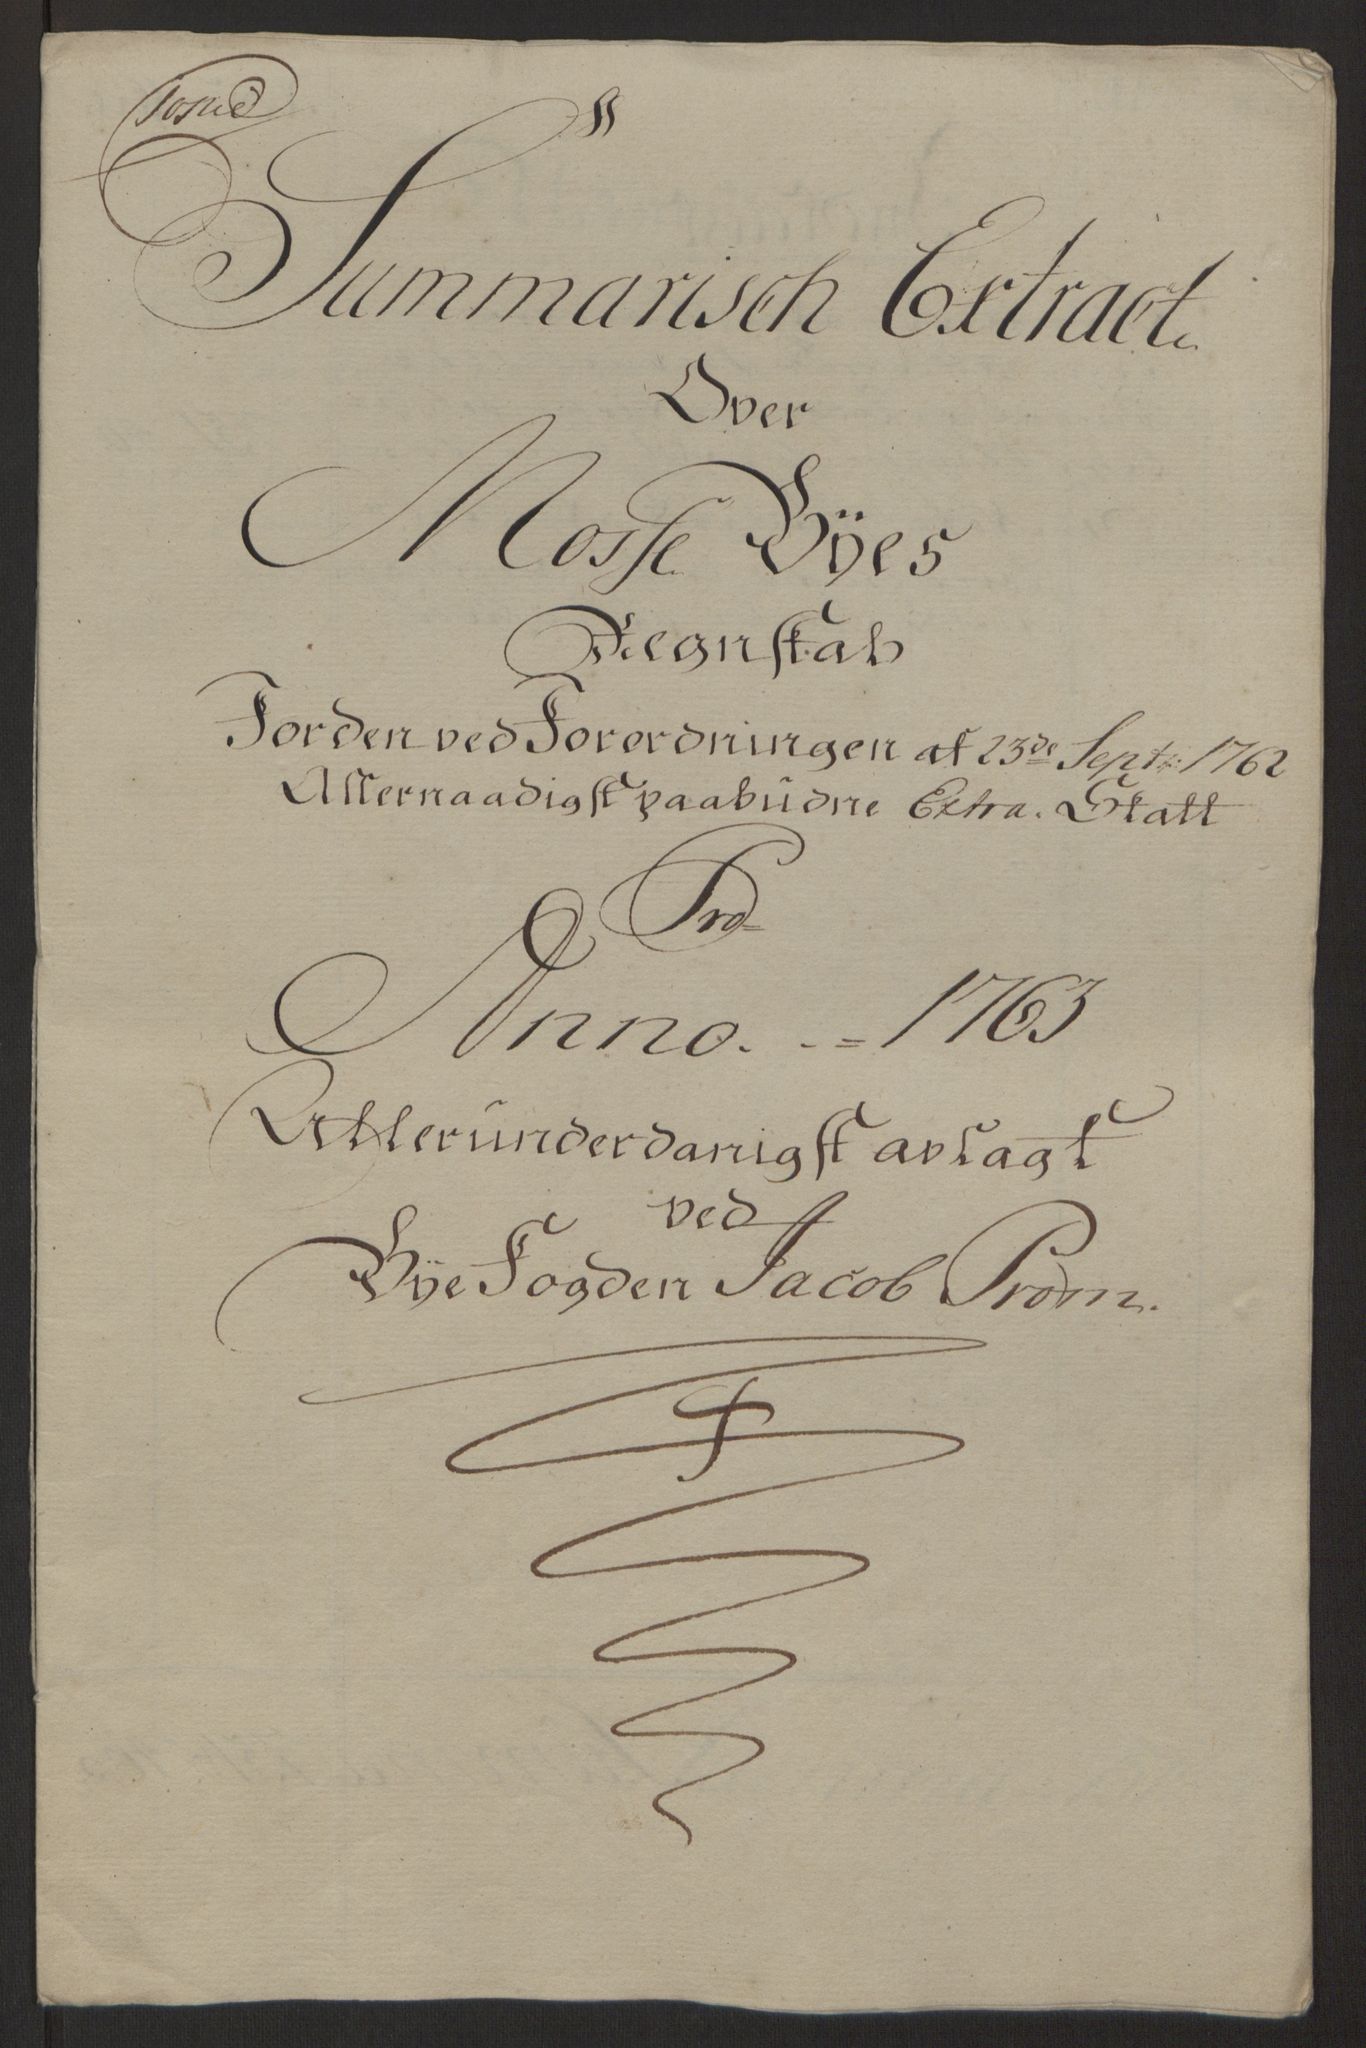 Summarisch Extract
Over
Mosse Bÿes
Regnskab
For den ved Forordningen af 23de Sept: 1762
Allernaadigst paabudne Extra. Skatt
Pro
Anno. . = 1763
Allerunderdanigst avlagt
ved
Bÿe Fogden Jacob Prom.